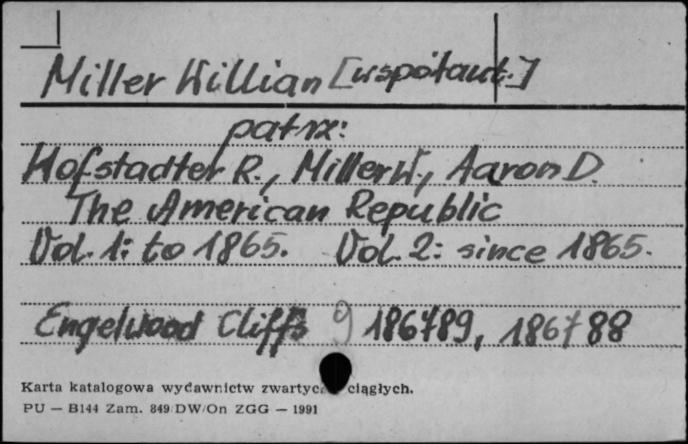 Miller Willian [współaut.]
patrz:
Hofstadter R., Miller W., Aaron D.
The American Republic
Vol. 1: to 1865. Vol. 2: since 1865.
Engelwood Cliffs 186789, 186788
Karta katalogowa wydawnictw ciągłych.
PU — B144 Zam. 849/DW/On ZGG — 1991